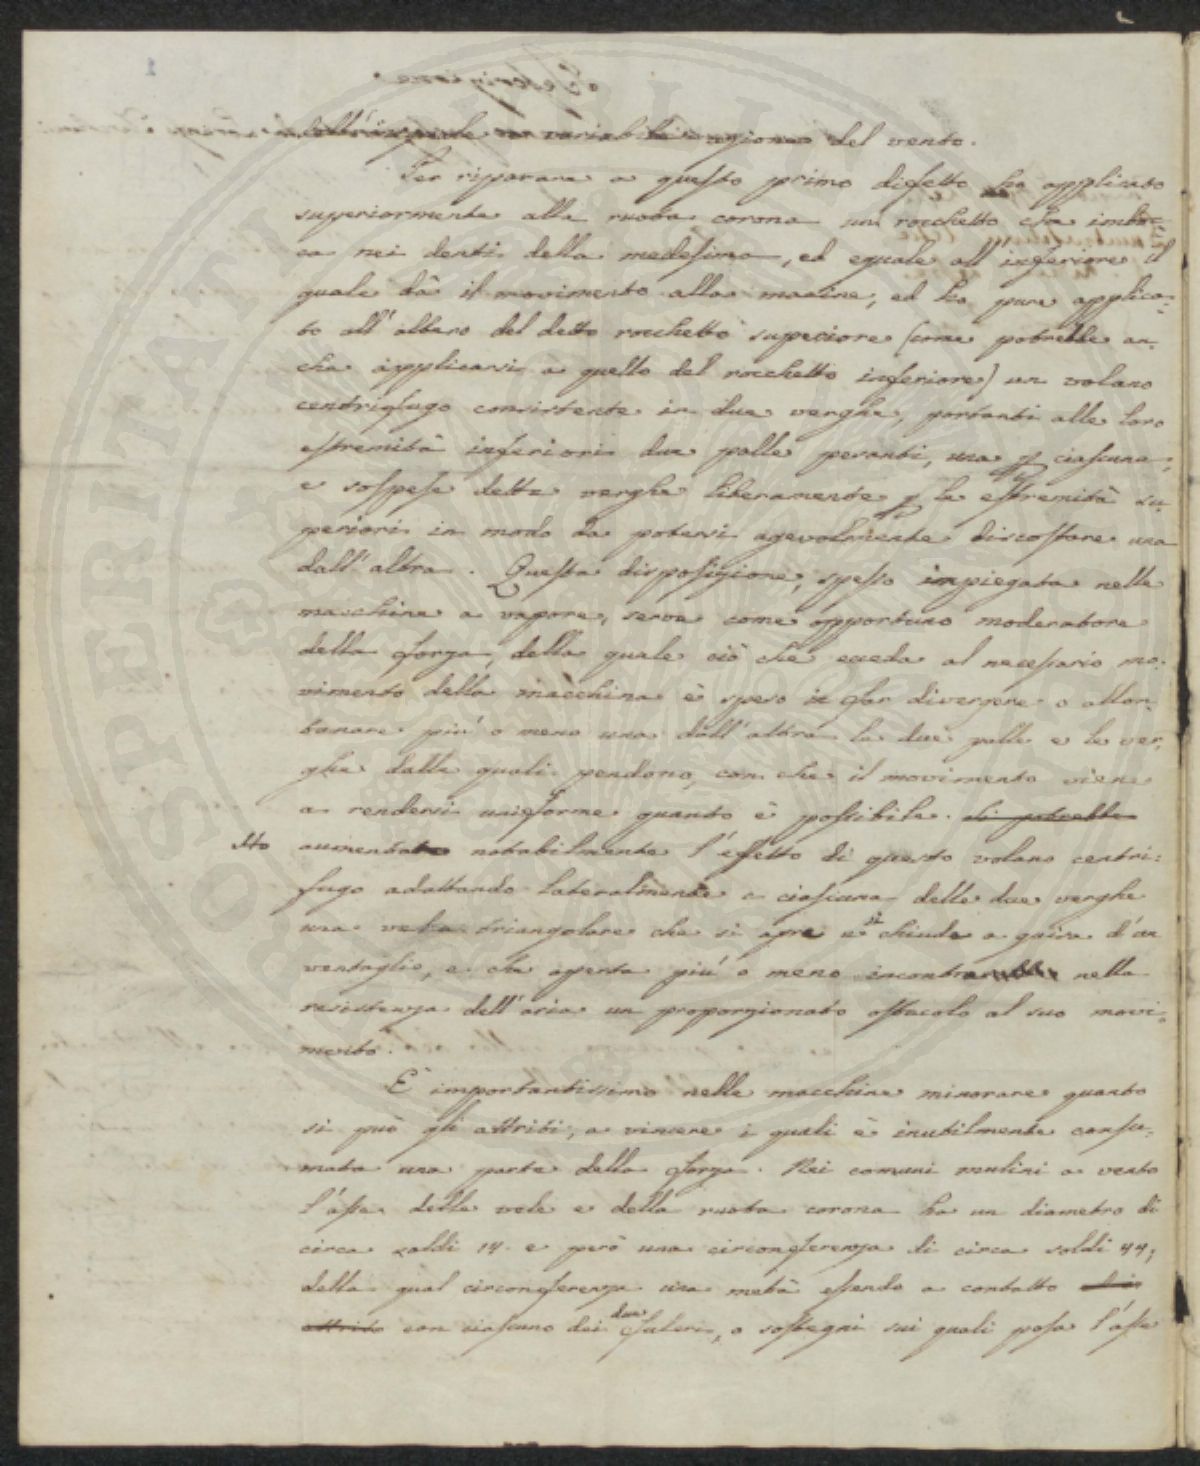 dall'ineguale e variabile regione del vento.
Per riparare a questo primo difetto ho applicato
superiormente alla ruota corona un rocchetto che imboc-
ca nei denti della medesima, ed eguale all'inferiore il
quale dà il movimento alla macine, ed ho pure applica-
to all'albero del detto rocchetto superiore (come potrebbe an-
che applicarsi a quello del rocchetto inferiore) un volano
centrifugo consistente in due verghe, portanti alle loro
estremità inferiori due palle pesanti, una p ciascuna,
e sospese dette verghe liberamente p le estremità su-
periori in modo da potersi agevolmente discostare una
dall'altra. Questa disposizione, spesso impiegata nelle
macchine a vapore, serve come opportuno moderatore
della forza, della quale ciò che eccede al necessario mo-
vimento della macchina è speso in far divergere o allon-
tanare più o meno una dall'altra le due palle e le ver-
ghe dalle quali pendono, con che il movimento viene
a rendersi uniforme quanto è possibile. Si potrebbe
Ho aumentato notabilmente l'effetto di questo volano centri-
fugo adattando lateralmente a ciascuna delle due verghe
una vela triangolare che si apre e si chiude a guisa d'un
ventaglio, e che aperta più o meno incontra nella
resistenza dell'aria un proporzionato ostacolo al suo movi-
mento.
È importantissimo nelle macchine minorare quanto
si può gli attriti, a vincere i quali è inutilmente consu-
mata una parte della forza. Nei comuni mulini a vento
l'asse delle vele e della ruota corona ha un diametro di
circa soldi 14. e però una circonferenza di circa soldi 44;
della qual circonferenza una metà essendo a contatto
attrito con ciascuno dei due fulcri, o sostegni sui quali posa l'asse